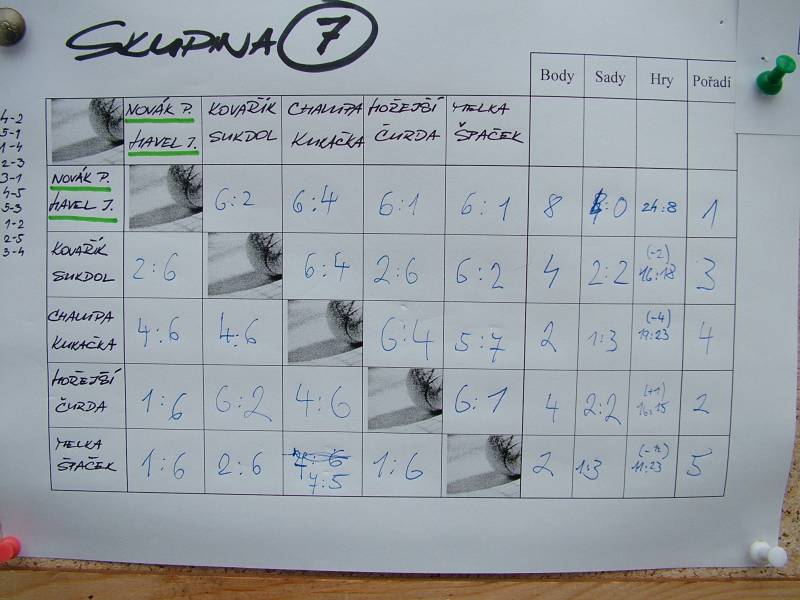 SKUPINA 7
Body Sady Hry Pořadí
NOVÁK P. KOVAŘÍK CHALUPA HOŘEJŠÍ MELKA
HAVEL J. SUKDOL KUKAČKA ČURDA ŠPAČEK
4-2
5-1
1-4
2-3
3-1
4-5
5-3
1-2
2-5
3-4
NOVÁK P.
HAVEL J. 6:2 6:4 6:1 6:1 8 4:0 24:8 1
KOVAŘÍK (-2)
SUKDOL 2:6 6:4 2:6 6:2 4 2:2 16:18 3
CHALUPA (-4)
KUKAČKA 4:6 4:6 6:4 5:7 2 1:3 19:23 4
HOŘEJŠÍ (+1)
ČURDA 1:6 6:2 4:6 6:1 4 2:2 2
MELKA
ŠPAČEK 1:6 2:6 7:5 1:6 2 1:3 11:23 5